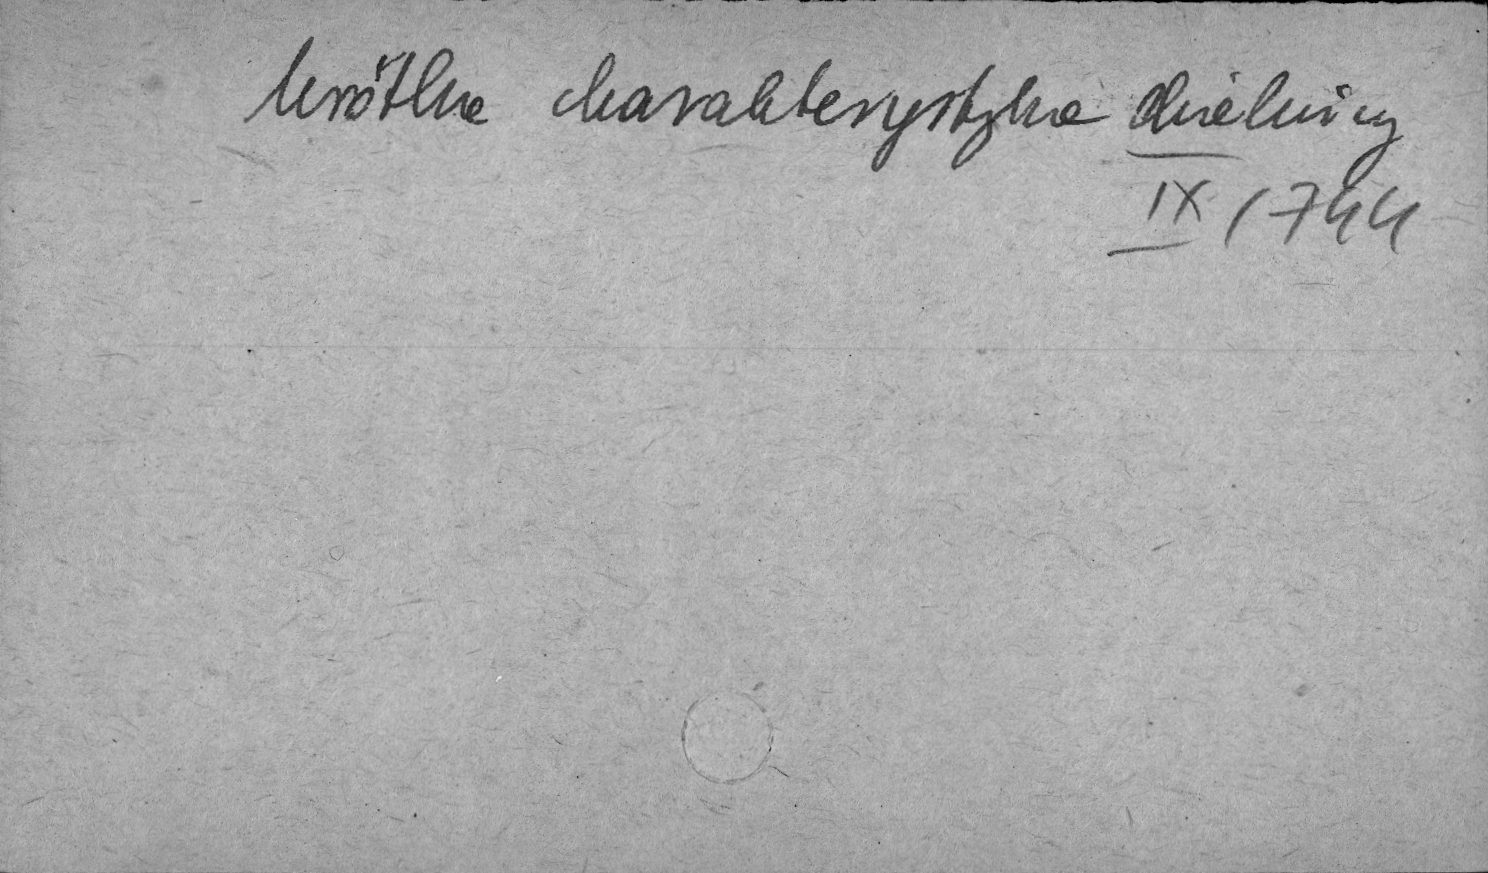 krótka charakterystyka dzielnicy
IX/744